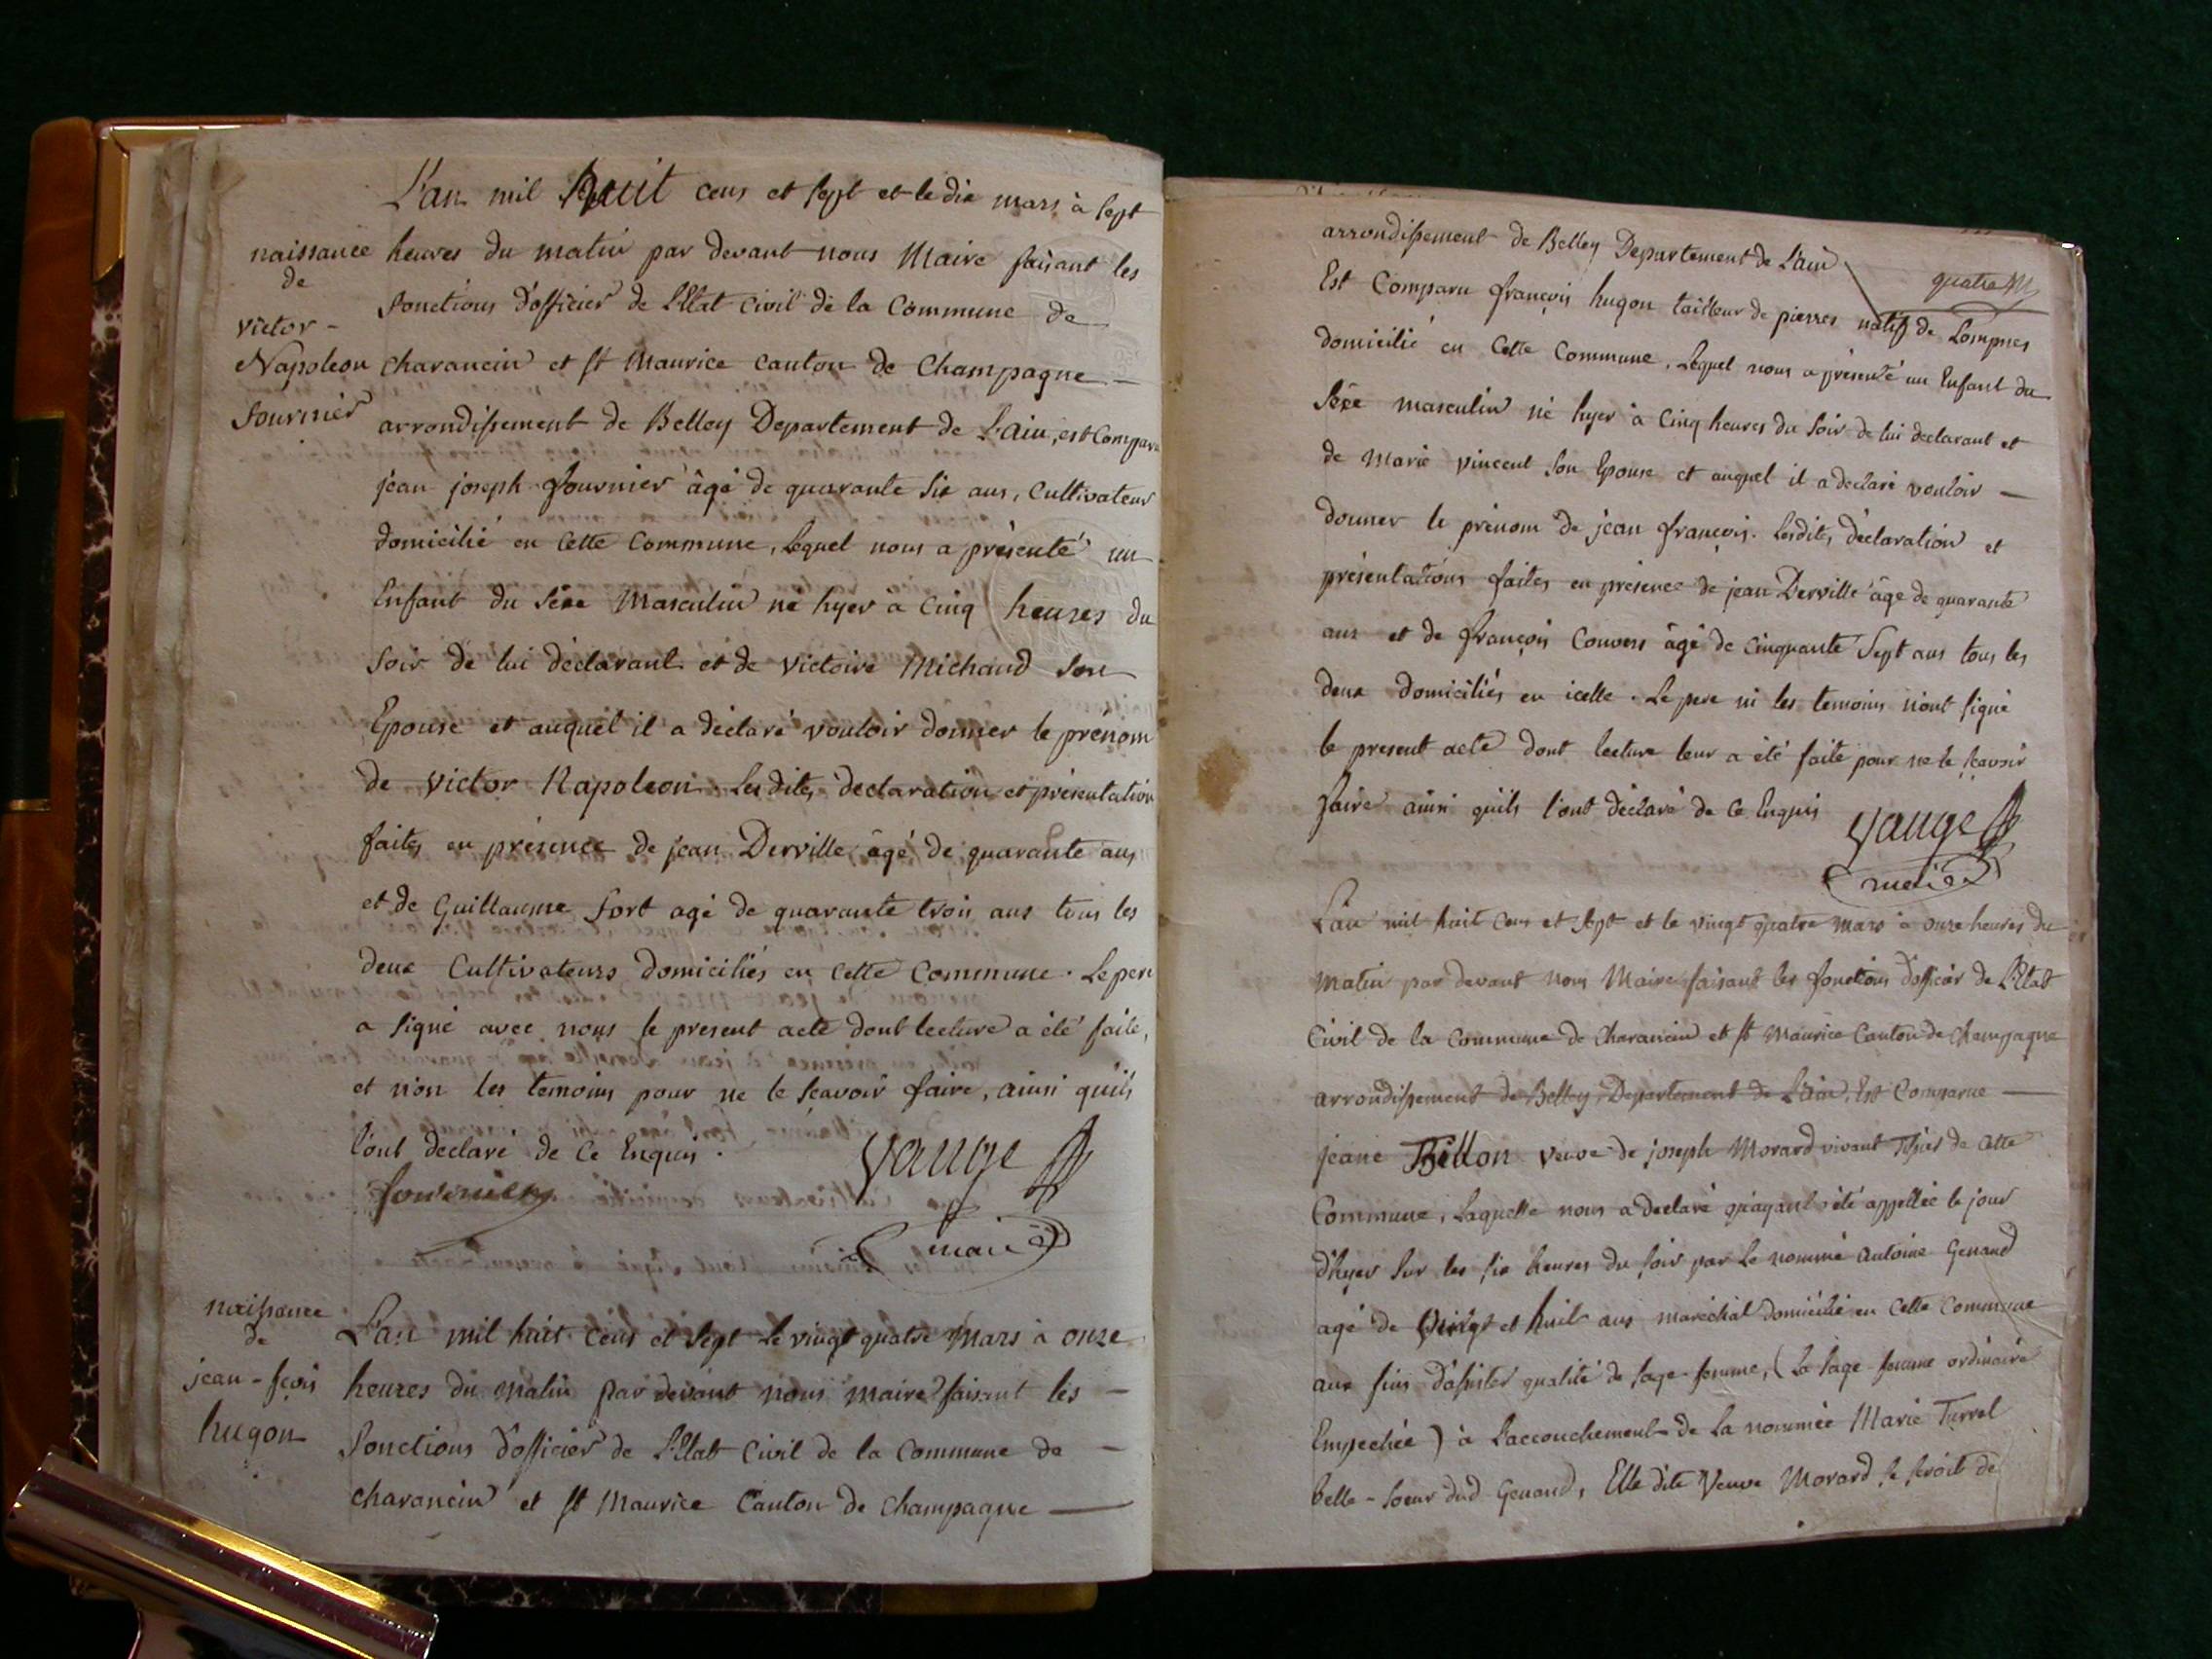 L'an mil huit cens et sept et le dix mars à sept
naissance
de
victor -
Napoleon
fournier
heures du matin par devant nous Maire faisant les
fonctions d'officier de L'Etat Civil de la Commune de
charancin et st Maurice canton de Champagne -
arrondissement de Belley Departement de L'ain, est Comparu
jean joseph fournier âgé de quarante six ans, Cultivateur
domicilié en Cette Commune, Lequel nous a présenté un
Enfant du sèxe Masculin né hyer à Cinq heures du
soir de lui déclarant et de victoire Michaud son
Epouse et auquel il a déclaré vouloir donner le prénom
de victor Napoleon. Lesdites déclaration et présentation
faites en présence de jean Derville âgé de quarante ans
et de Guillaume fort agé de quarante trois ans tous les
deux Cultivateurs domiciliés en Cette Commune. Le pere
a signé avec nous le present acte dont lecture a été faite,
et non les temoins pour ne le sçavoir faire, ainsi quils
l'ont déclaré de Ce Enquis.
fournier
vauge
maire
naissance
de
jean-fçois
hugon
L'an mil huit cens et sept Le vingt quatre Mars à onze
heures du matin par devant nous maire faisant les -
fonctions d'officier de L'Etat Civil de la Commune de -
charancin et st Maurice Canton de Champagne -
quatre
arrondissement de Belley Departement de L'ain
Est Comparu françois hugon tailleur de pierres natif de Lompnes
domicilié en Cette Commune, Lequel nous a présenté un Enfant du
sèxe masculin né hyer à Cinq heures du soir de lui declarant et
de Marie vincent son Epouse et auquel il a declaré vouloir -
donner le prénom de jean françois. Lesdites déclaration et
présentations faites en présence de jean Derville âgé de quarante
ans et de françois Convers âgé de Cinquante sept ans tous les
deux domiciliés en icelle. Le pere ni les temoins n'ont signé
le present acte dont lecture leur a été faite pour ne le sçavoir
faire ainsi quils l'ont déclaré de Ce Enquis
vauge
maire
L'an mil huit cens et sept et le vingt quatre Mars à onze heures du
Matin par devant nous Maire faisant les fonctions d'officier de L'Etat
Civil de la Commune de Charancin et st Maurice Canton de Champagne
arrondissement de Belley, Departement de L'ain, Est Comparue -
jeane Billon veuve de joseph Morard vivant de Cette
Commune, Laquelle nous a declaré qu'ayant été appellée le jour
d'hyer sur les six heures du soir par Le nommé antoine Genand
agé de vingt et huit ans maréchal domicilié en Cette Commune
aux fins d'assister qualité de sage-femme, (La sage-femme ordinaire
Empechée) à L'accouchement de La nommée Marie Turrel
belle-soeur dud Genand, Elle dite veuve Morard se seroit de